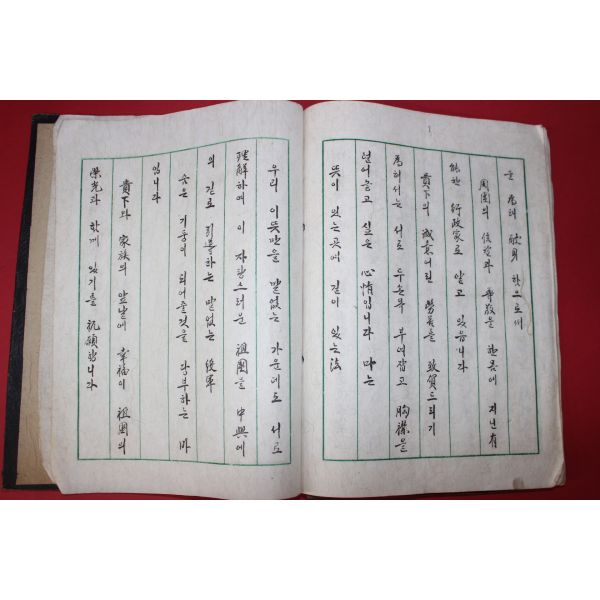 은 爲해 献身 함으로써
周圍의 信望과 尊敬을 한몸에 지닌 有
能한 行政家로 알고 있읍니다
貴下의 誠意어린 勞苦를 致賀드리기
爲해서는 서로 두손목 부여잡고 胸襟을
털어놓고 싶은 心情입니다 마는
뜻이 있는곳에 길이 있는法
우리 이뜻만을 말없는 가운데도 서로
理解하여 이 자랑스러운 祖國을 中興에
의 길로 引導하는 말없는 役軍
숨은 기둥이 되어줄것을 당부하는 바
입니다
貴下와 家族의 앞날에 幸福이 祖國의
榮光과 함께 있기를 祈願합니다